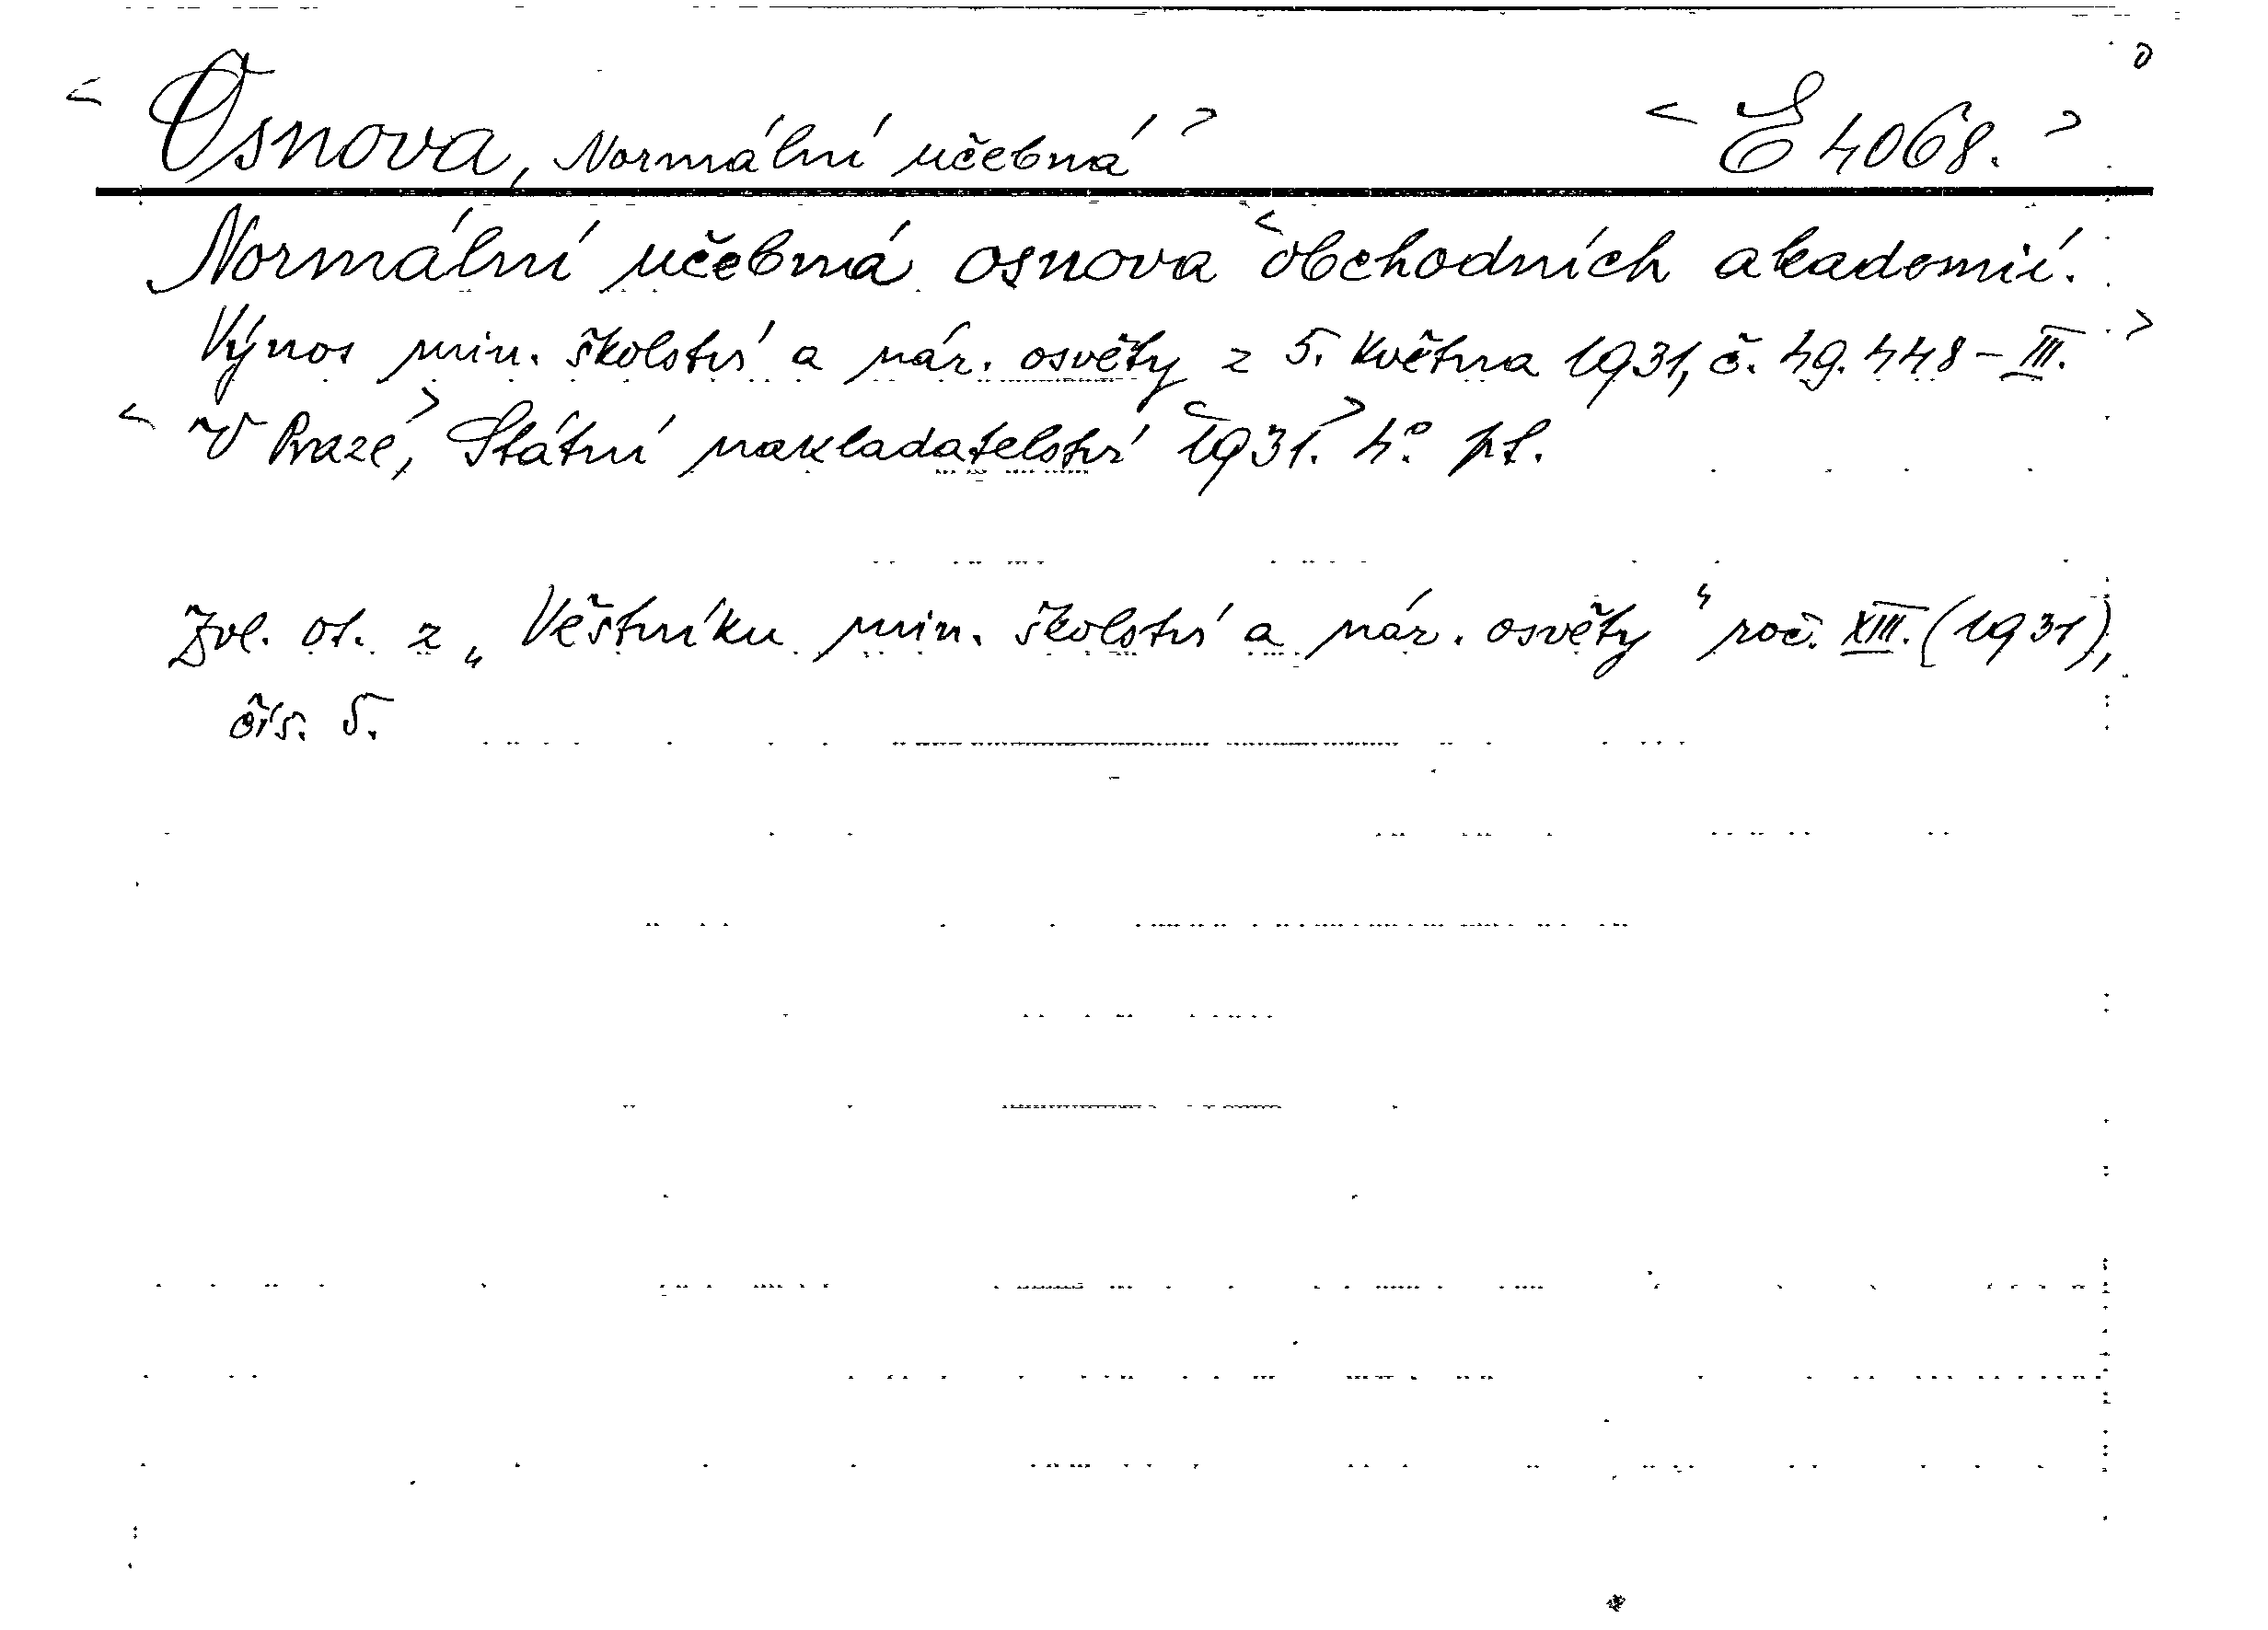 < Osnova, Normální učebná > < E 4068. >
Normální učebná osnova < obchodních akademií.
Výnos min. školství a nár. osvěty z 5. května 1931, č. 49.448-III. >
< V Praze, > Státní nakladatelství < 1931. > 4° pf.
Zvl. ot. z „Věstníku min. školství a nár. osvěty“ roč. XIII. (1931),
čís. 5.